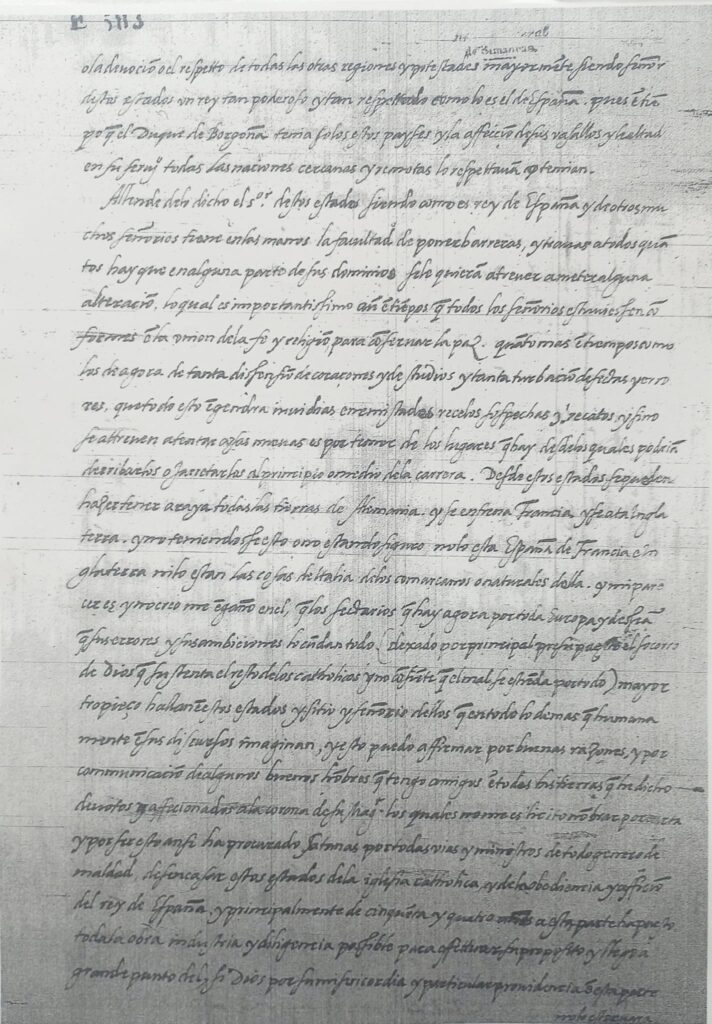 E 583
de Simancas
o la devociō o el respetto de todas las otras regiones y potestades mayormēte siendo señor
destos estados un rey tan poderoso y tan respettado como lo es el de España. pues ē tiē
po q̄ el Duque de Borgoña tenia solos estos payses y la affeciō de sus vasallos y lealtad
en su servº todas las naciones cercanas y remotas lo respettavā o temian.
Allende delo dicho el s.or destos estados siendo como es rey de España y de otros mu
chos señorios tiene en las manos la facultad de poner barreras, y travas a todos quā
tos hay que en alguna parte de sus dominios se le quierā atrever a meter alguna
alteraciō, lo qual es importantissimo aū ē tiēpos q̄ todos los señorios estuviessen cō
formes ē la union dela fe y religiō para cōservar la paz. quāto mas ē tiempos como
los de agora de tanta dissensiō de coraçones y de studios y tanta turbaciō de sectas y erro
res, que todo esto ēgendra invidias enemistades recelos sospechas y recatos, y si no
se attreven a tentar cosas nuevas es por temor de los lugares q̄ hay desde los quales podriā
derribarlos o jarretarlos al principio o medio dela carrera. Desde estos estados se pueden
hazer tener a raya todas las tierras de Alemania. y se enfrena Francia, y se ata ingla
terra. y no teniendosse esto o no estando siguro no lo esta España de Francia e in
glaterra ni lo estan las cosas de Italia delos comarcanos o naturales della. y mi pare
cer es y no creo me ēgaño en el, q̄ los sectarios q̄ hay agora por toda Europa y dessean
q̄ sus errores y sus ambiciones lo cundan todo (dexado por principal presupuesto el socorro
de Dios q̄ sustenta el resto de los catholicos y no cōsiēte q̄ el mal se estiēda por todo) mayor
tropieço hallan ē estos estados y sitio y señorio dellos q̄ en todo lo demas q̄ humana
mente ē sus discursos imaginan, y esto puedo affirmar por buenas razones, y por
communicaciō de algunos buenos hōbres q̄ tengo amigos ē todas las tierras q̄ he dicho
devotos y aficionados a la corona de su Magt. los quales no me es licito nōbrar por carta
y por ser esto ansi ha procurado Satanas por todas vias y ministros de todo genero de
maldad, desencasar estos estados dela iglesia catholica, y dela obediencia y afficiō
del rey de España, y principalmente de cinquēta y quatro años a esta parte ha puesto
toda la obra industria y diligencia possible para effetuar su proposito y llegara
grande punto del, si Dios por su misericordia y particular providencia ē esta parte
no lo estorvara